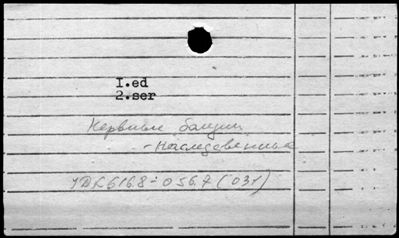 I.ed
2.ser
Нервные болезни
- Наследственные
УДК 616.8-056.7 (031)